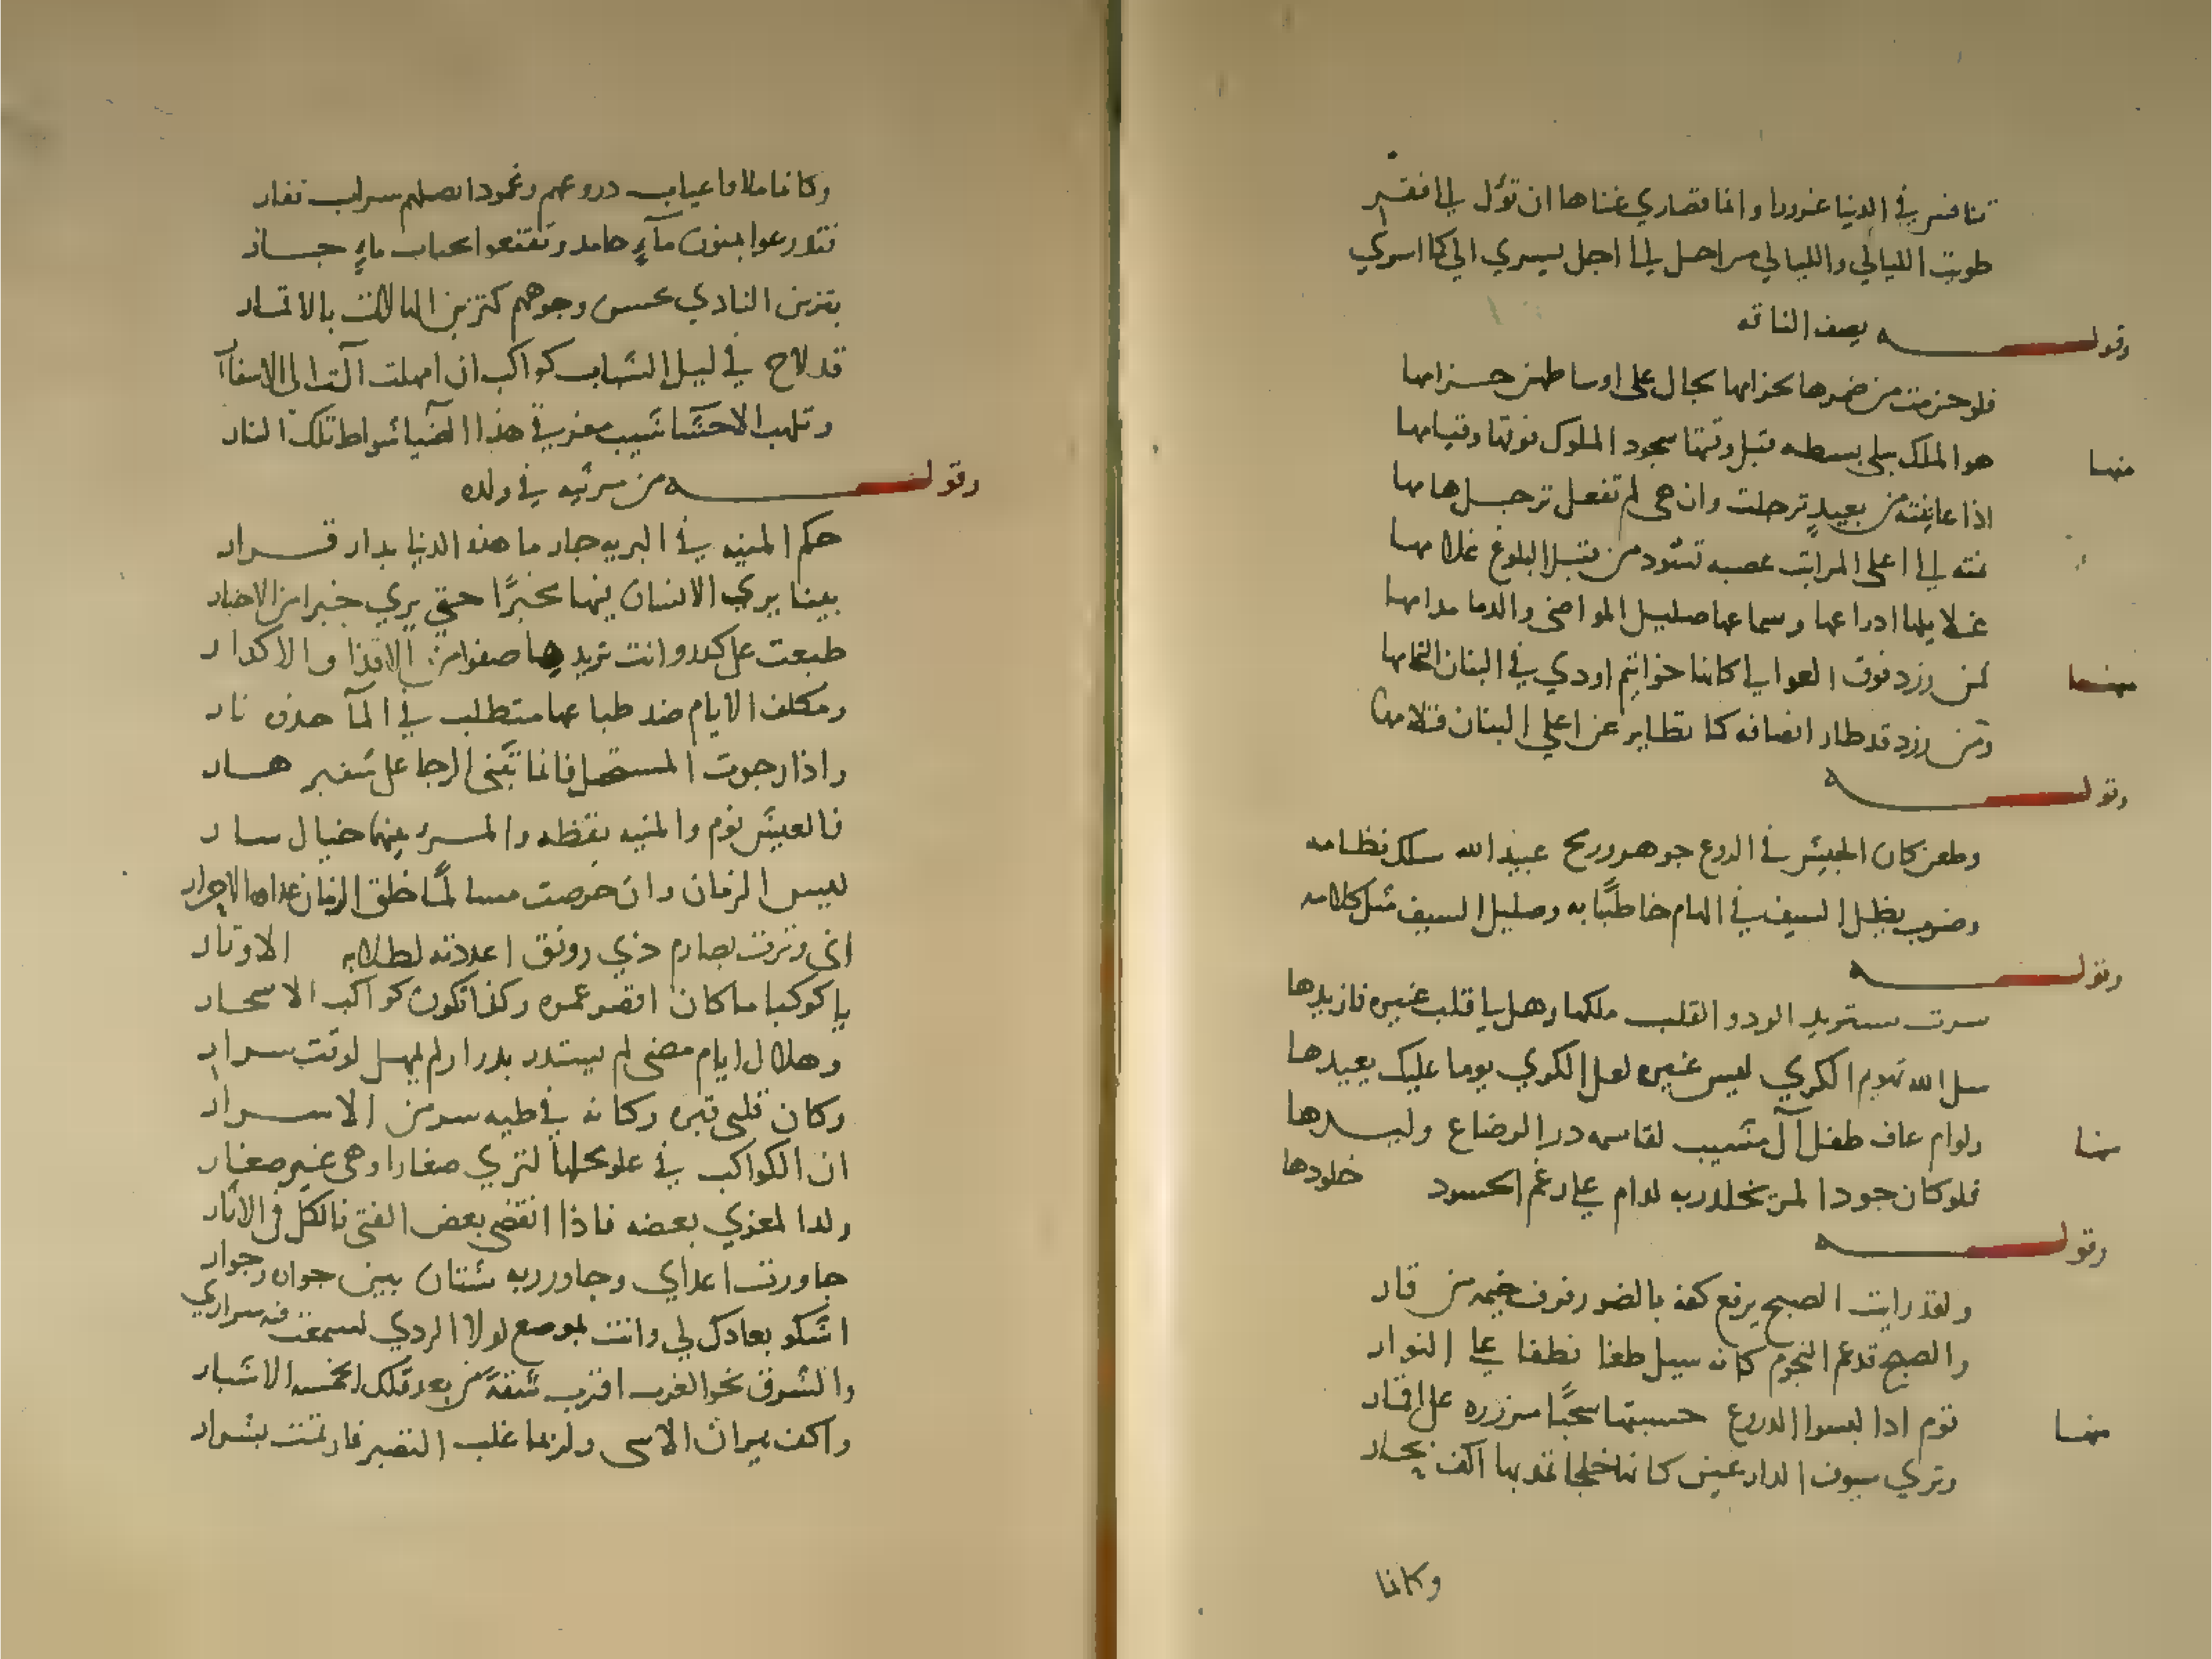 تنافس في الدنيا غرورا وانما قصاري غناها ان تؤل الي الفقر
طويت الليالي والليالي مراحل الي اجل يسري الي كما اسري
وقوله يصف الناقه
فلو حزمت من ضمرها بخزامها لجال علي اوساطهن حزامها
منها
هو الملك يبلي بسطه قبل وقتها سجود الملوك فوقها وقيامها
اذا عاينته من بعيد ترجلت وان هي لم تفعل ترجل هامها
نمته الي اعلي المراتب عصبه تسود من قبل البلوغ غلامها
غلايلها ادراعها وسماعها صليل المواضي والدما مدامها
منها
فمن زرد فوق العوالي كانها خواتيم اودي في البنان التحامها
ومن زرد قد طار انصافه كما تطاير عن اعلي البنان قلامها
وقوله
وطعن كان الجيش في الدرع جوهر ورمح عبيد الله سلك نظامه
وضرب يظل السيف في الهام خاطبًا به وصليل السيف مثل كلامه
وقوله
سرت تستزيد الود والقلب ملكها وهل لي قلب غيره فازيدها
سل الله تهويم الكري ليس غيره لعل الكري يوما عليك يعيدها
منها
ولو ام عاف طفل آل مسيب لقاسمه در الرضاع وليدها
فلو كان جود المرء يخلد ربه لدام علي رغم الحسود خلودها
وقوله
ولقد رايت الصبح يرفع كفه بالضو رفرف خيمه من قار
والصبح قد غمر النجوم كانه سيل طغا فطفا علي النوار
منها
قوم اذا لبسوا الدروع حسبتها سحبًا مزرره علي اقمار
وتري سيوف الدارعين كانها خلجا تمد بها اكف بحار
وكانما
وكانما ملاوا عياب دروعهم وغمود انصلهم سراب قفار
فتدرعوا بمتون مآءٍ جامد وتقنعوا بحباب ماءٍ جار
يتزين النادي بحسن وجوههم كتزين الهالات بالاقمار
قد لاح في ليل الشباب كواكب ان امهلت آلت الي الاسفار
وتلهب الاحشا شيب مفرقي هذا الضيا شواظ تلك النار
وقوله من مرثيه في ولده
حكم المنيه في البريه جار ما هذه الدنيا بدار قرار
بينا يري الانسان فيها مخبرًا حتي يري خبرا من الاخبار
طبعت علي كدر وانت تريدها صفوا من الاقذا والاكدار
ومكلف الايام ضد طباعها متطلب في المآ جذوة نار
واذا رجوت المستحيل فانما تبني الرجا علي شفير هار
فالعيش نوم والمنيه يقظه والمرء بينهما خيال سار
ليس الزمان وان حرصت مسالمًا خلق الزمان عداوه الاحرار
اني وترت بصارم ذي رونق اعددته لطلابه الاوتار
يا كوكبا ما كان اقصر عمره وكذا تكون كواكب الاسحار
وهلال ايام مضي لم يستدر بدرا ولم يمهل لوقت سرار
وكان قلبي قبره وكانه في طيه سر من الاسرار
ان الكواكب في علو محلها لتري صغارا وهي غير صغار
ولد المعزي بعضه فاذا انقضي بعض الفتي فالكل في الاثار
جاورت اعداي وجاور ربه شتان بين جواره وجواري
اشكو بعادك لي وانت بموضع لولا الردي لسمعت فيه سراري
والشرق نحو الغرب اقرب شقةً من بعد تلك الخمسه الاشبار
واكف نيران الاسي ولربما غلب التصبر فارتمت بشرار